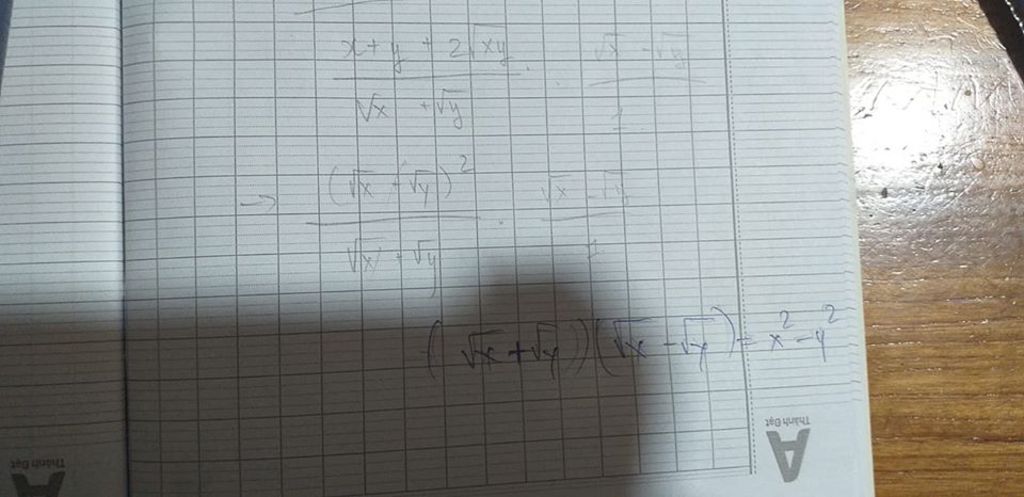 x + y + 2√xy / √x + √y . √x - √y / 1
→ (√x + √y)² / √x + √y . √x - √y / 1
(√x + √y)(√x - √y) = x² - y²
Thành Đạt
Thành Đạt